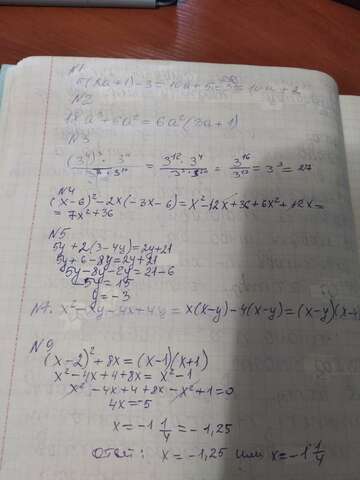 N1
5(2a+1)-3=10a+5-3=10a+2
N2
18a³+6a²=6a²(3a+1)
N3
(3⁴)³·3⁴ = 3¹²·3⁴ = 3¹⁶/3¹³ = 3³ = 27
N4
(x-6)²-2x(-3x-6)=x²-12x+36+6x²+12x=
=7x²+36
N5
5y+2(3-4y)=2y+21
5y+6-8y=2y+21
5y-8y-2y=21-6
-5y=15
y=-3
N7. x²-xy-4x+4y=x(x-y)-4(x-y)=(x-y)(x-4
N9
(x-2)²+8x=(x-1)(x+1)
x²-4x+4+8x=x²-1
x²-4x+4+8x-x²+1=0
4x=-5
x=-1 1/4=-1,25
Ответ: x=-1,25 или x=-1 1/4